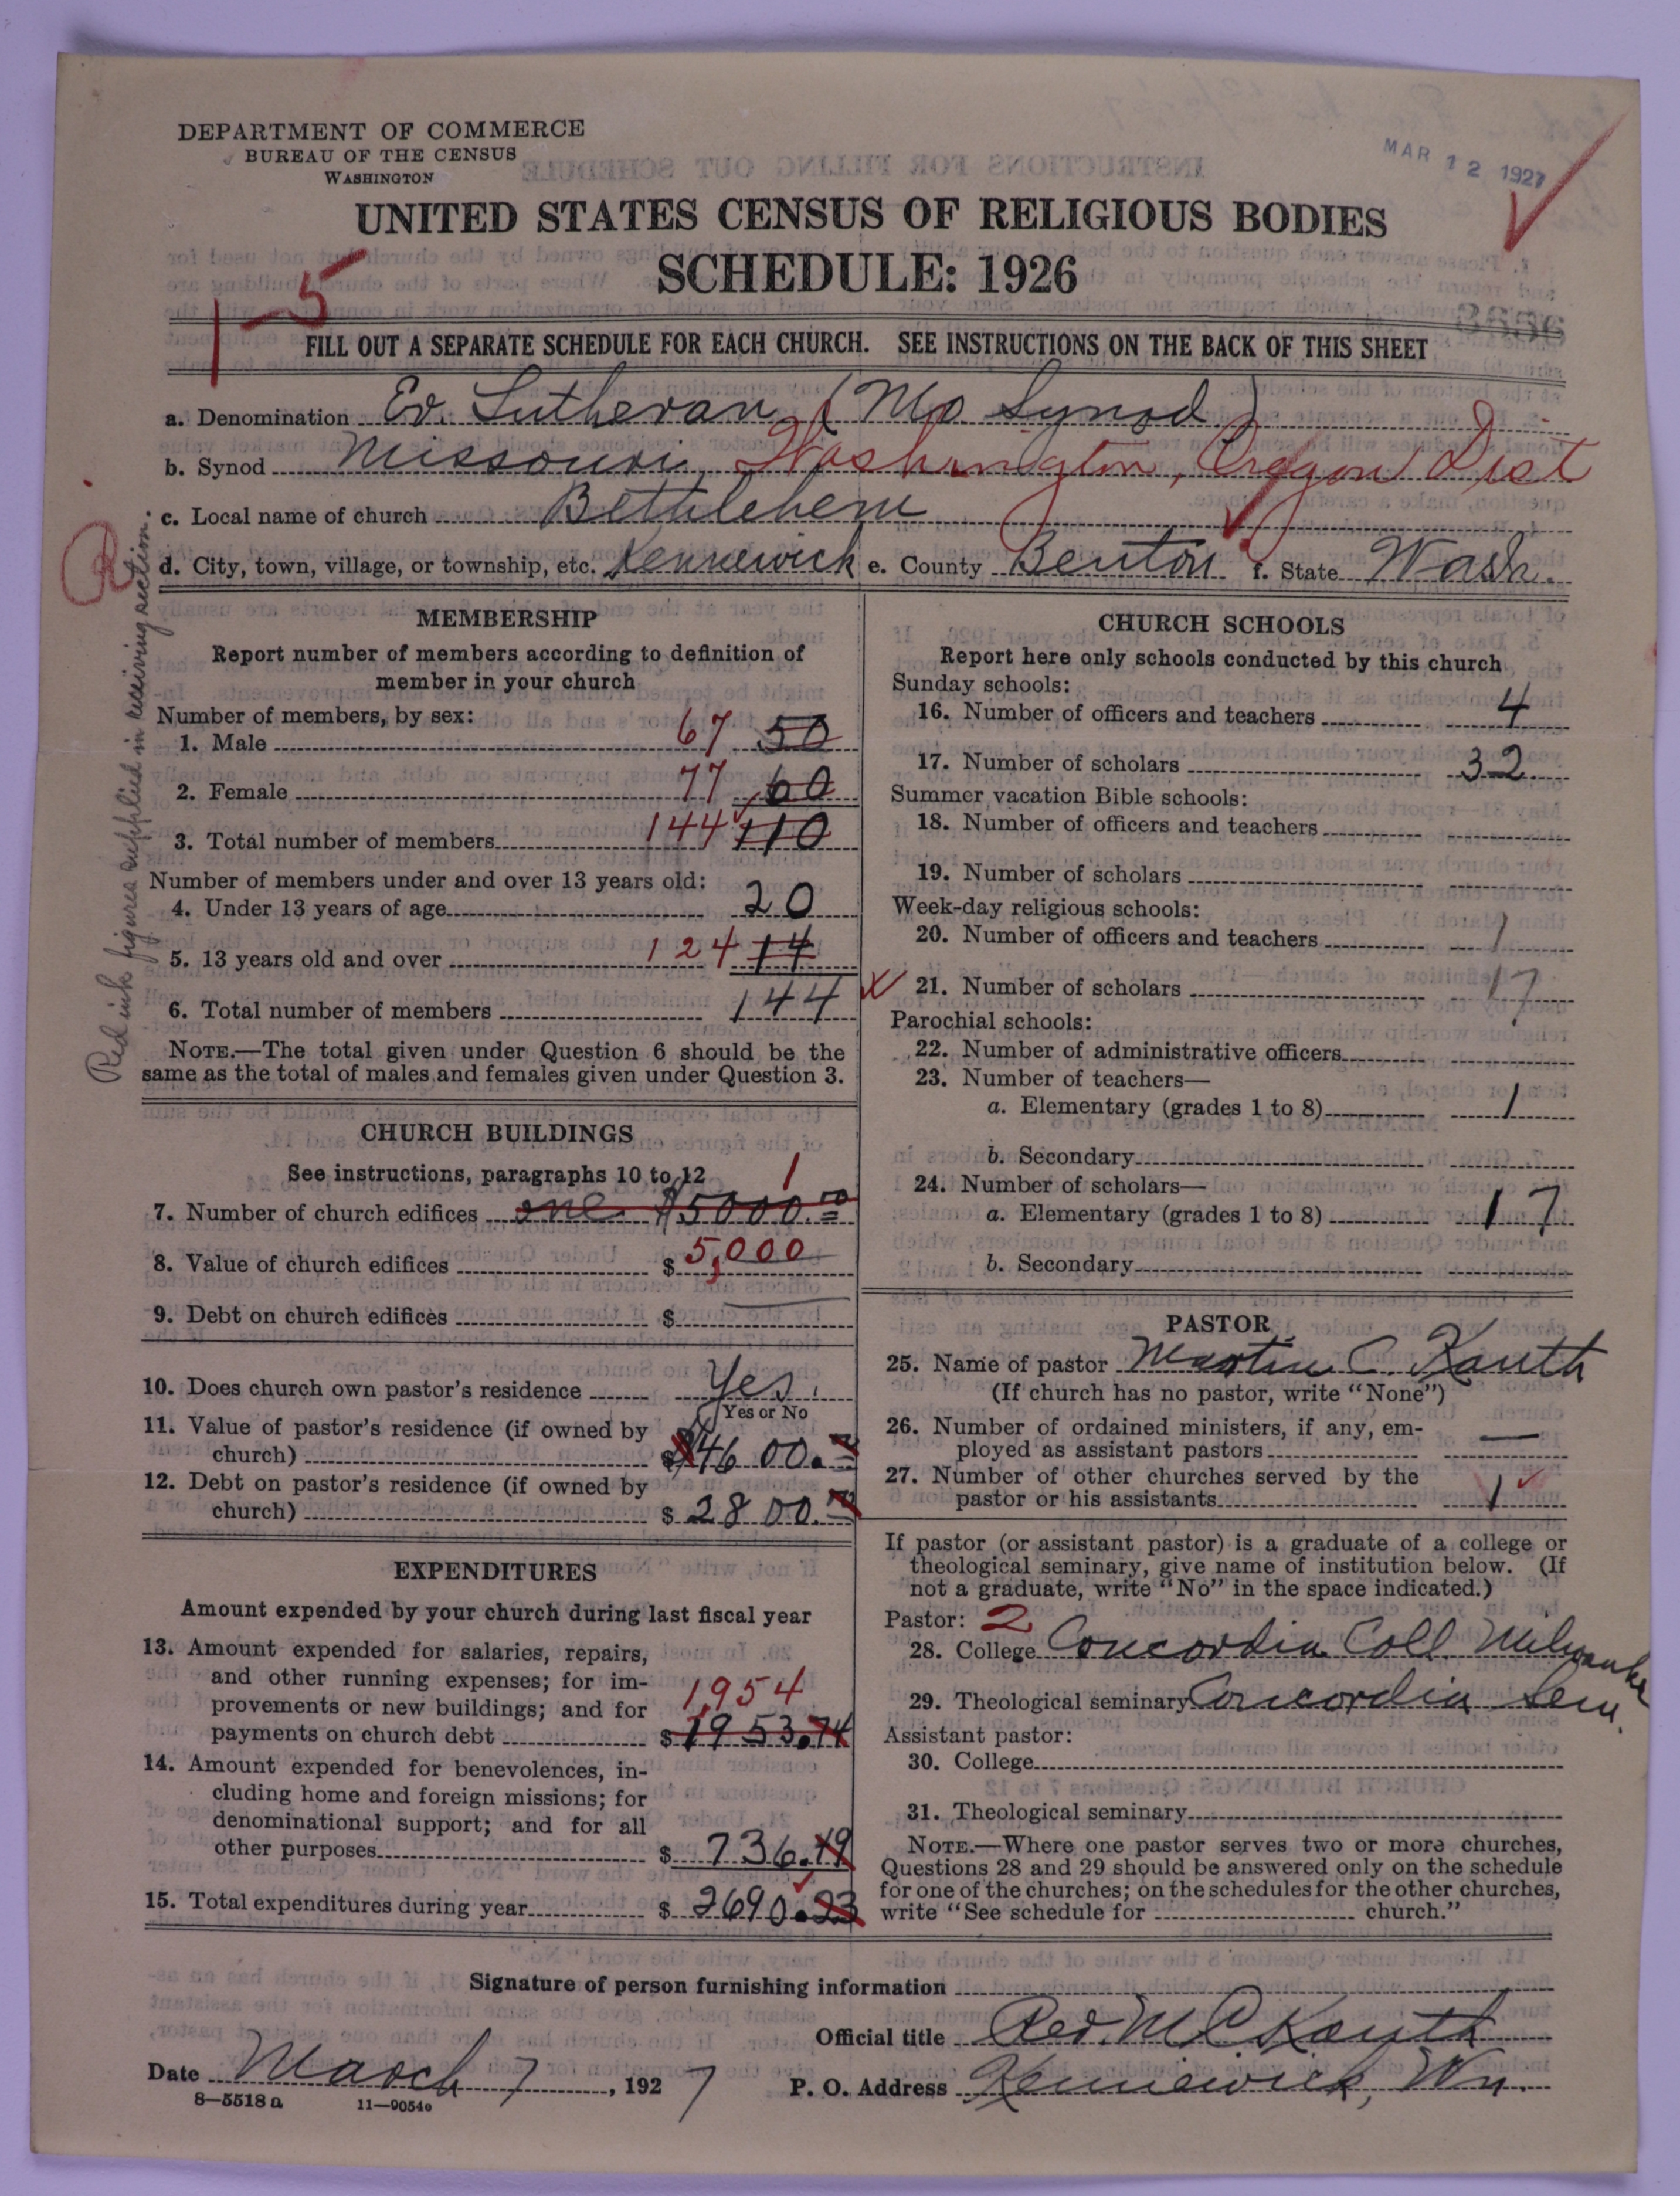 DEPARTMENT OF COMMERCE
BUREAU OF THE CENSUS
WASHINGTON
MAR 12 1927
UNITED STATES CENSUS OF RELIGIOUS BODIES
SCHEDULE: 1926
1-5
FILL OUT A SEPARATE SCHEDULE FOR EACH CHURCH. SEE INSTRUCTIONS ON THE BACK OF THIS SHEET
a. Denomination Ev. Lutheran (Mo Synod)
b. Synod Missouri, Washington, Oregon Dist
c. Local name of church Bethlehem
d. City, town, village, or township, etc. Kennewick e. County Benton f. State Wash.
Red ink figures supplied in receiving section.
MEMBERSHIP
Report number of members according to definition of
member in your church
Number of members, by sex:
1. Male 67 50
2. Female 77 60
3. Total number of members 144 110
Number of members under and over 13 years old:
4. Under 13 years of age 20
5. 13 years old and over 124 14
6. Total number of members 144
NOTE.—The total given under Question 6 should be the
same as the total of males and females given under Question 3.
CHURCH BUILDINGS
See instructions, paragraphs 10 to 12
7. Number of church edifices one $5000.00 1
8. Value of church edifices $ 5,000
9. Debt on church edifices $ —
10. Does church own pastor's residence Yes.
Yes or No
11. Value of pastor's residence (if owned by
church) $ $4600.00
12. Debt on pastor's residence (if owned by
church) $ 2800.00
EXPENDITURES
Amount expended by your church during last fiscal year
13. Amount expended for salaries, repairs,
and other running expenses; for im-
provements or new buildings; and for 1,954
payments on church debt $ 1953.74
14. Amount expended for benevolences, in-
cluding home and foreign missions; for
denominational support; and for all
other purposes $ 736.49
15. Total expenditures during year $ 2690.23
CHURCH SCHOOLS
Report here only schools conducted by this church
Sunday schools:
16. Number of officers and teachers 4
17. Number of scholars 32
Summer vacation Bible schools:
18. Number of officers and teachers
19. Number of scholars
Week-day religious schools:
20. Number of officers and teachers 1
21. Number of scholars 17
Parochial schools:
22. Number of administrative officers
23. Number of teachers—
a. Elementary (grades 1 to 8) 1
b. Secondary
24. Number of scholars—
a. Elementary (grades 1 to 8) 17
b. Secondary
PASTOR
25. Name of pastor Martin C. Kauth
(If church has no pastor, write "None")
26. Number of ordained ministers, if any, em-
ployed as assistant pastors —
27. Number of other churches served by the
pastor or his assistants 1
If pastor (or assistant pastor) is a graduate of a college or
theological seminary, give name of institution below. (If
not a graduate, write "No" in the space indicated.)
Pastor: 2
28. College Concordia Coll. Milwaukee
29. Theological seminary Concordia Sem.
Assistant pastor:
30. College
31. Theological seminary
NOTE.—Where one pastor serves two or more churches,
Questions 28 and 29 should be answered only on the schedule
for one of the churches; on the schedules for the other churches,
write "See schedule for church."
Signature of person furnishing information
Official title Rev. M C Kauth
Date March 7, 1927 P. O. Address Kennewick, Wn.
8-5518 a 11-9054e